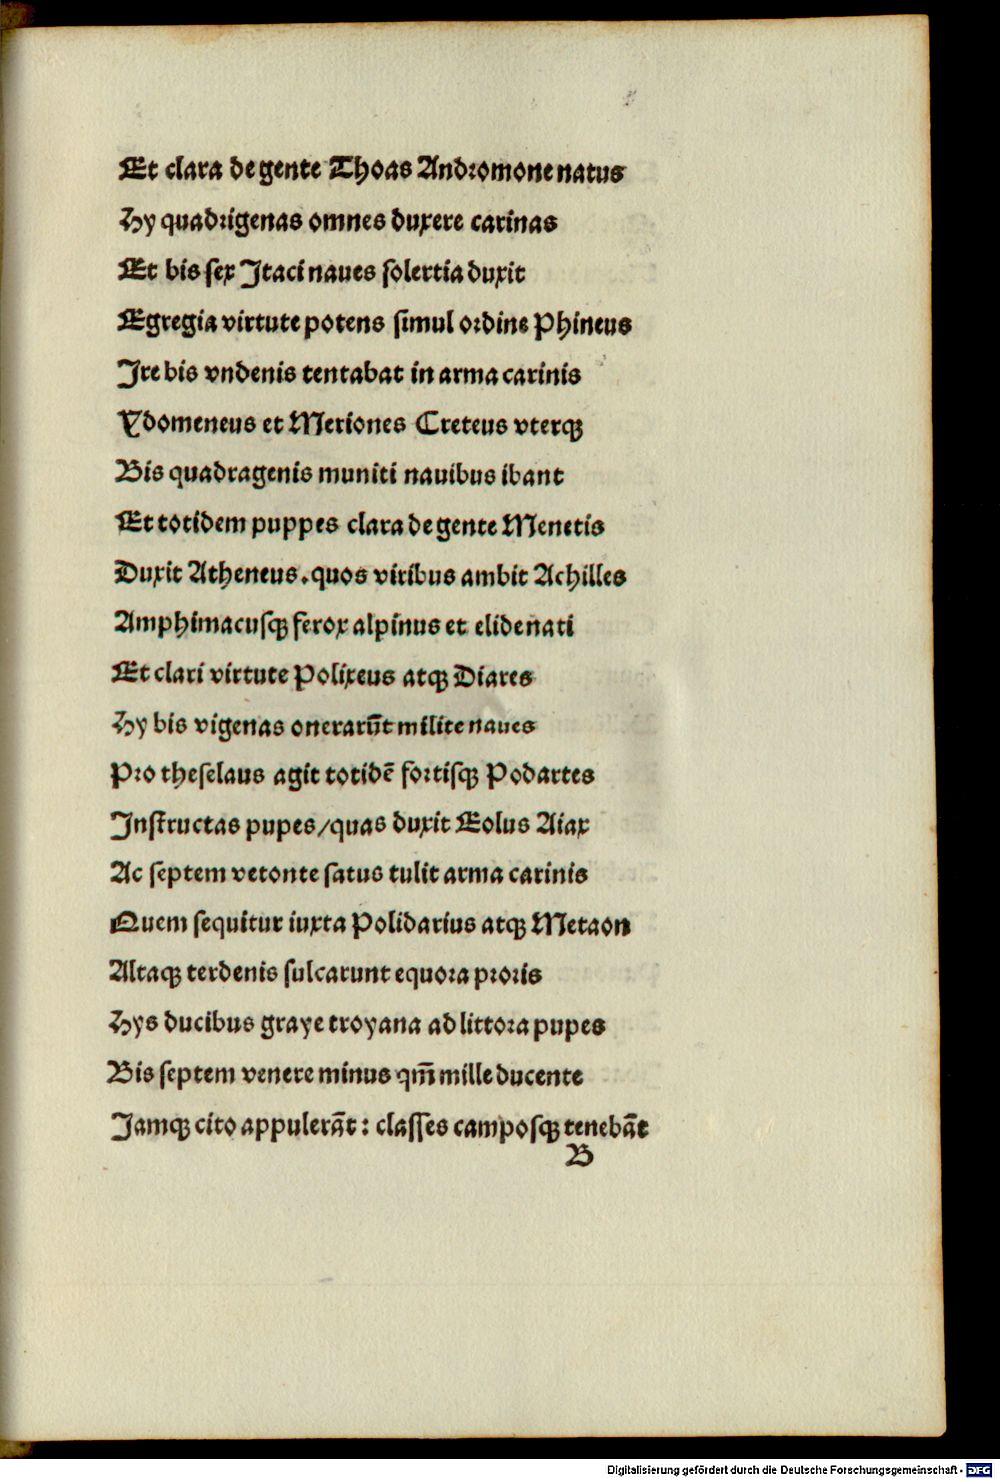 Et clara de gente Thoas Andromone natus
Hy quadrigenas omnes duxere carinas
Et bis sex Itaci naues solertia duxit
Egregia virtute potens simul ordine Phineus
Ire bis vndenis tentabat in arma carinis
Ydomeneus et Meriones Creteus vterqꝫ
Bis quadragenis muniti nauibus ibant
Et totidem puppes clara de gente Menetis
Duxit Atheneus.quos viribus ambit Achilles
Amphimacusqꝫ ferox alpinus et elidenati
Et clari virtute Polixeus atqꝫ Diares
Hy bis vigenas onerarūt milite naues
Pro theselaus agit totidē fortisqꝫ Podartes
Instructas pupes/quas duxit Eolus Aiax
Ac septem vetonte satus tulit arma carinis
Quem sequitur iuxta Polidarius atqꝫ Metaon
Altaqꝫ terdenis sulcarunt equora proris
Hys ducibus graye troyana ad littora pupes
Bis septem venere minus qm̄ mille ducente
Iamqꝫ cito appulerāt: classes camposqꝫ tenebāt
B
Digitalisierung gefördert durch die Deutsche Forschungsgemeinschaft - DFG